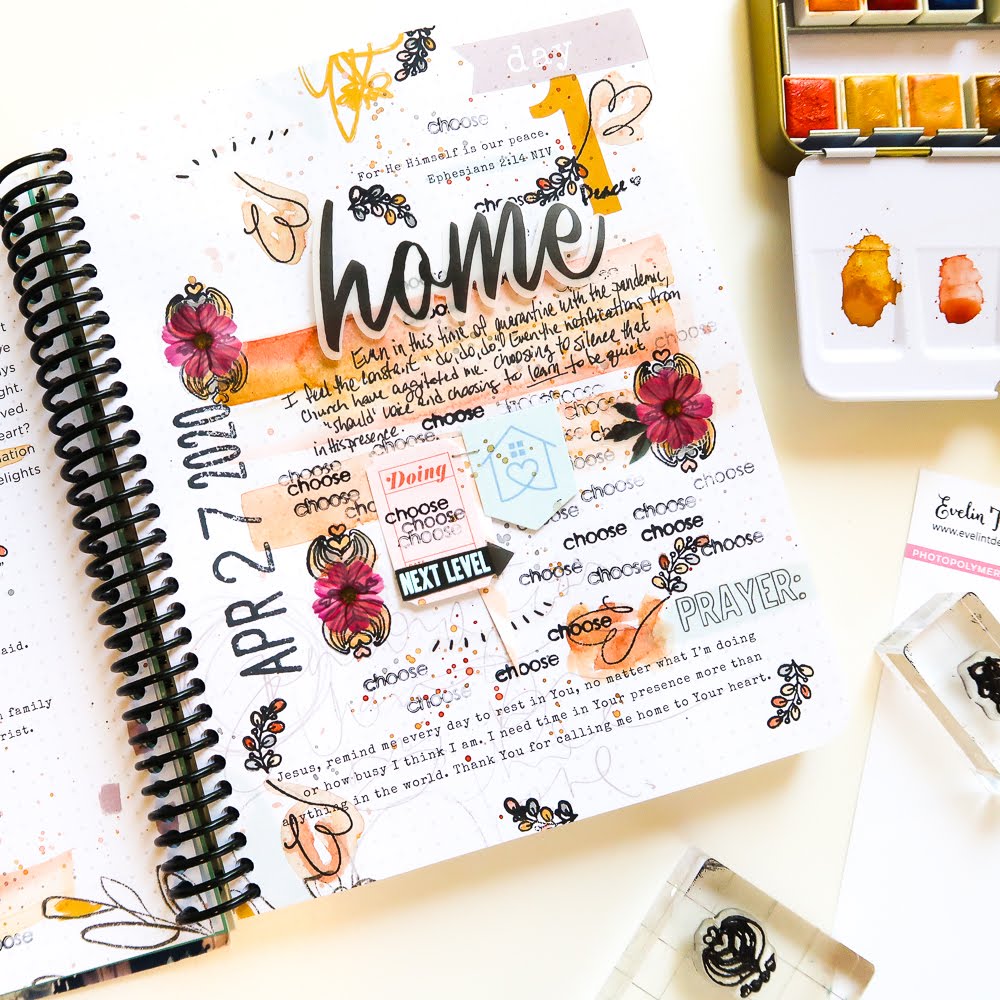 day
1
choose
For He Himself is our peace.
Ephesians 2:14 NIV
choose
Peace
home
Even in this time of quarantine with the pandemic,
I feel the constant "do, do, do"! Even the notifications from
church have aggitated me. Choosing to silence that
"should" voice and choosing to learn to be quiet
in His presence.
choose
choose
choose
choose
choose
choose
choose
choose
choose
APR 27 2020
Doing
choose
choose
choose
NEXT LEVEL
choose
choose
choose
choose
choose
choose
choose
choose
choose
choose
choose
choose
PRAYER:
Jesus, remind me every day to rest in You, no matter what I'm doing
or how busy I think I am. I need time in Your presence more than
anything in the world. Thank You for calling me home to Your heart.
ays
ght.
ved.
eart?
nation
elights
said.
family
rist.
oose
Evelin T
www.evelintde
PHOTOPOLYMER